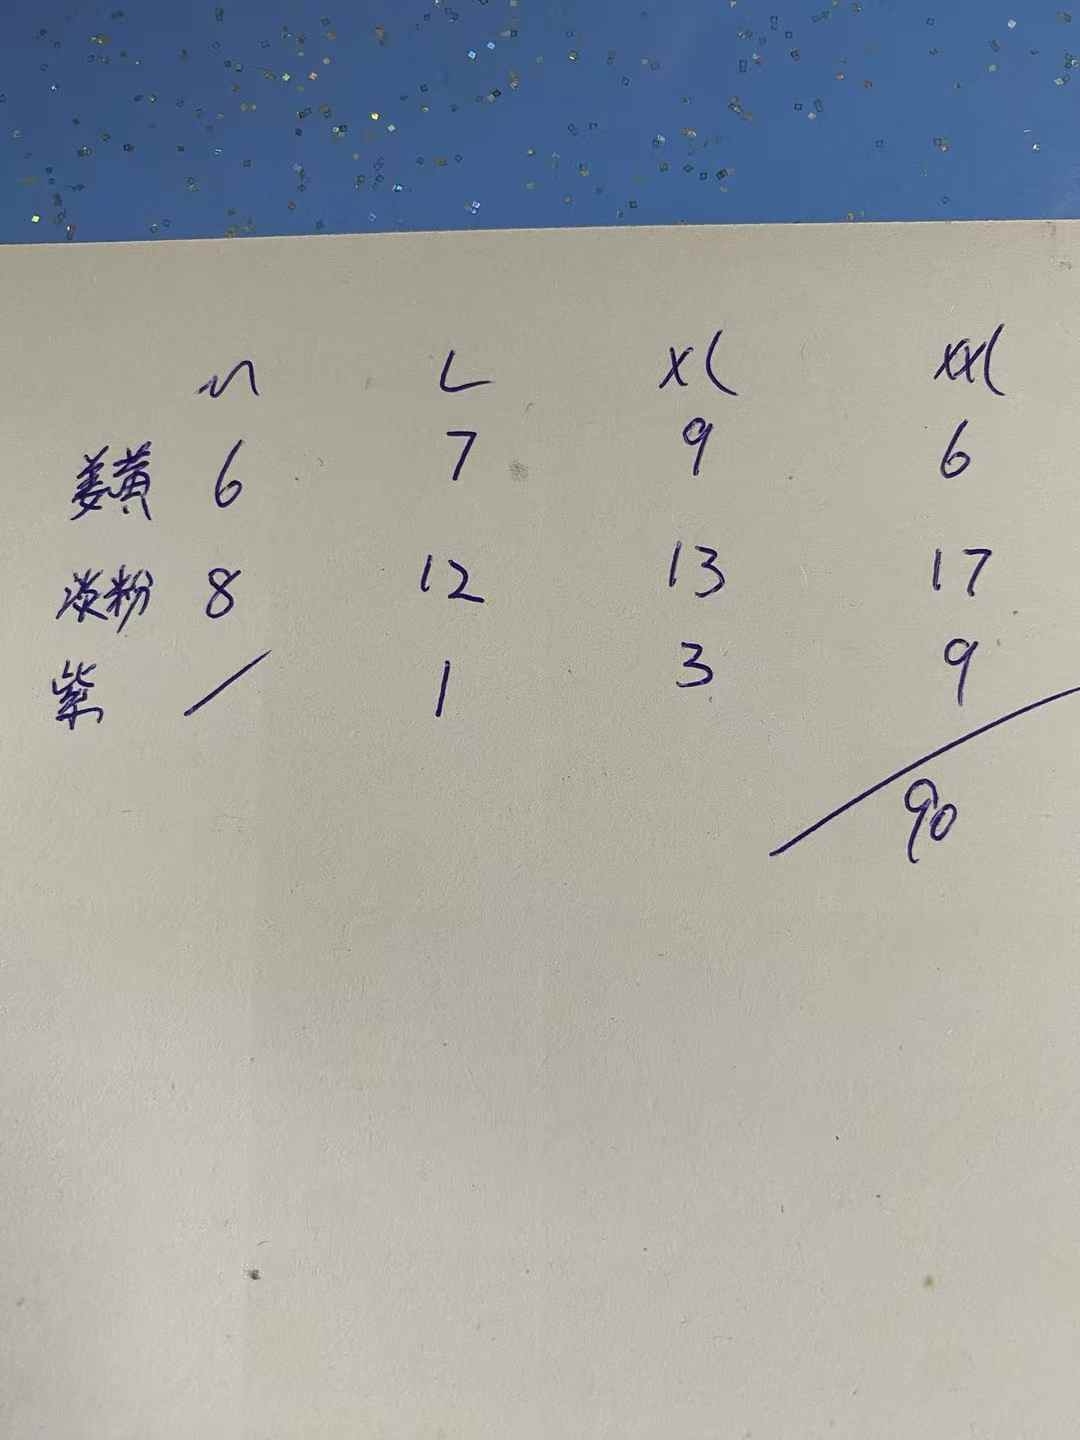 M L XL XXL
姜黄 6 7 9 6
淡粉 8 12 13 17
紫 / 1 3 9
90